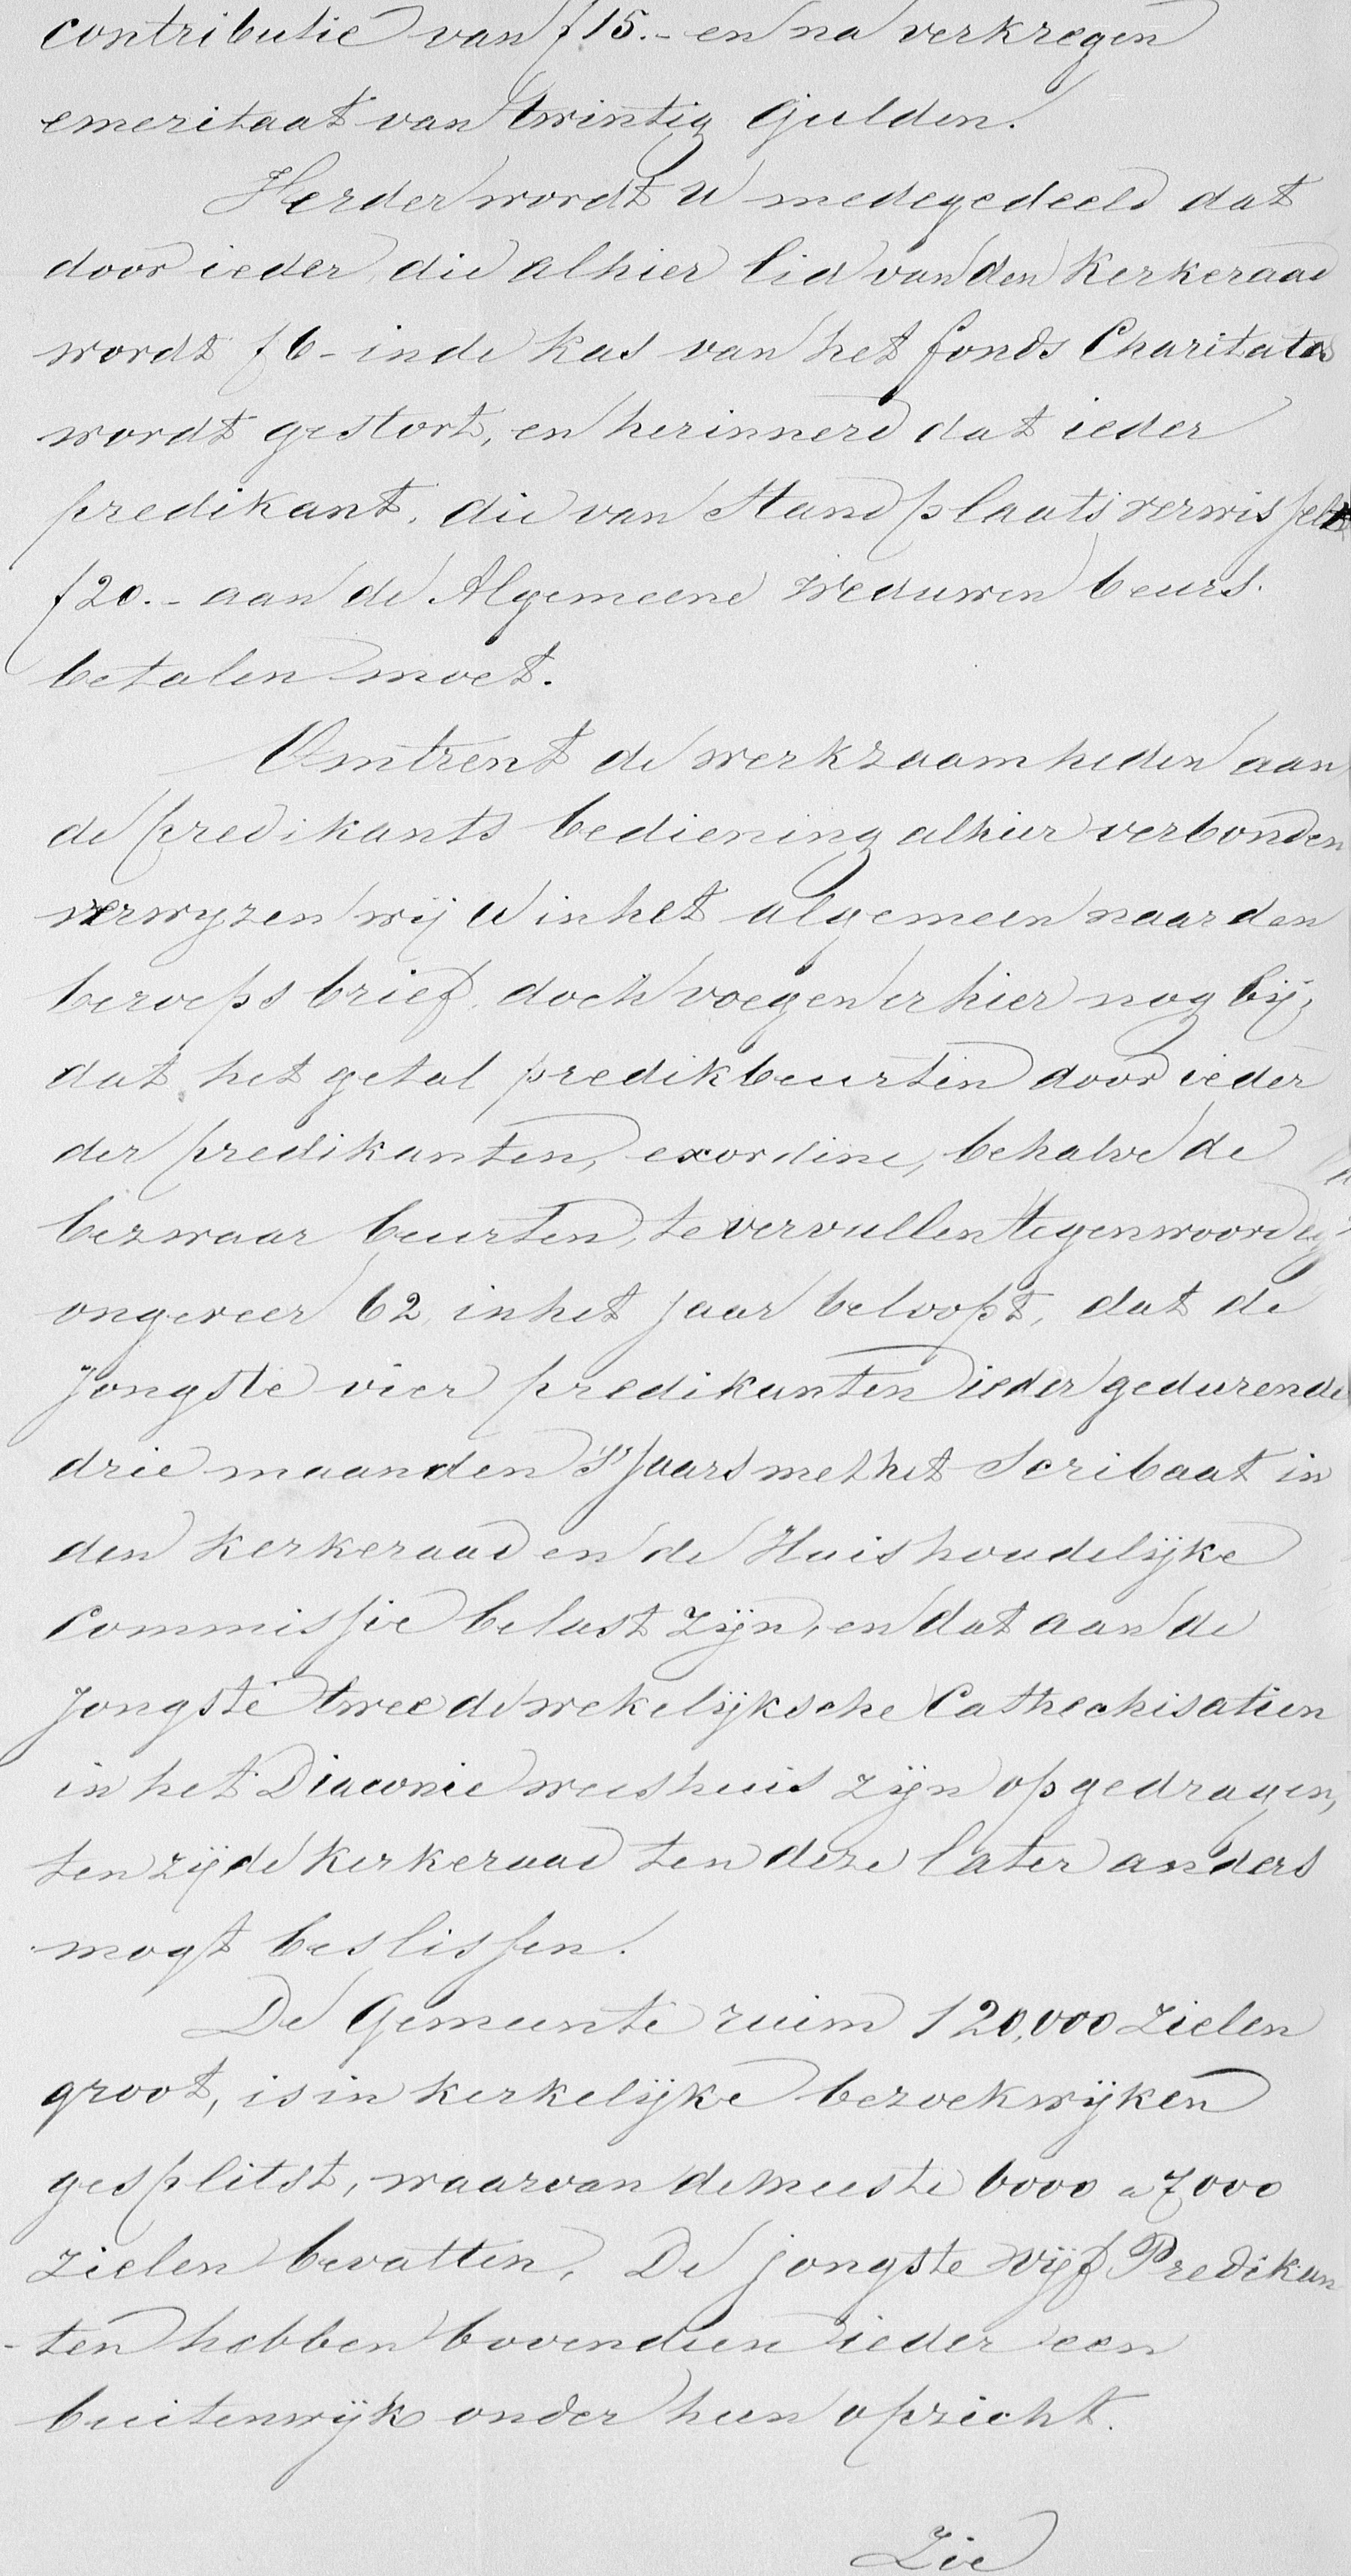 contributie van f 15.- en na verkregen
emeritaat van twintig Gulden.
Herder wordt u medegedeeld dat
door ieder, die alhier lid van den Kerkeraad
wordt f 6- in de kas van het fonds Charitates
wordt gestort, en herinnerd dat ieder
predikant, die van Standplaats verwisselt
f 20.- aan de Algemeene Weduwen beurs.
betalen moet.
Omtrent de werkzaamheden aan
de predikants bediening alhier verbonden
verwyzen wij U in het algemeen naar den
beroepsbrief, doch voegen er hier nog bij,
dat het getal predikbeurten door ieder
der predikanten, exordine, behalve de
bezwaar beurten, te vervullen tegenwoordig
ongeveer 62 in het jaar beloopt, dat de
Jongste vier predikanten ieder gedurende
drie maanden 's Jaars met het Scribaat in
den Kerkeraad en de Huishoudelijke
Commissie belast zijn, en dat aan de
Jongste twee de wekelijksche Cathechisatien
in het Diaconie weeshuis zijn opgedragen,
ten zij de kerkeraad ten deze later anders
mogt beslissen.
De Gemeente ruim 120,000 zielen
groot, is in kerkelijke bezoekwijken
gesplitst, waarvan de meeste 6000 a 7000
zielen bevatten, De jongste vijf Predikan
-ten hebben bovendien ieder een
buitenwijk onder hun opzicht.
Zie